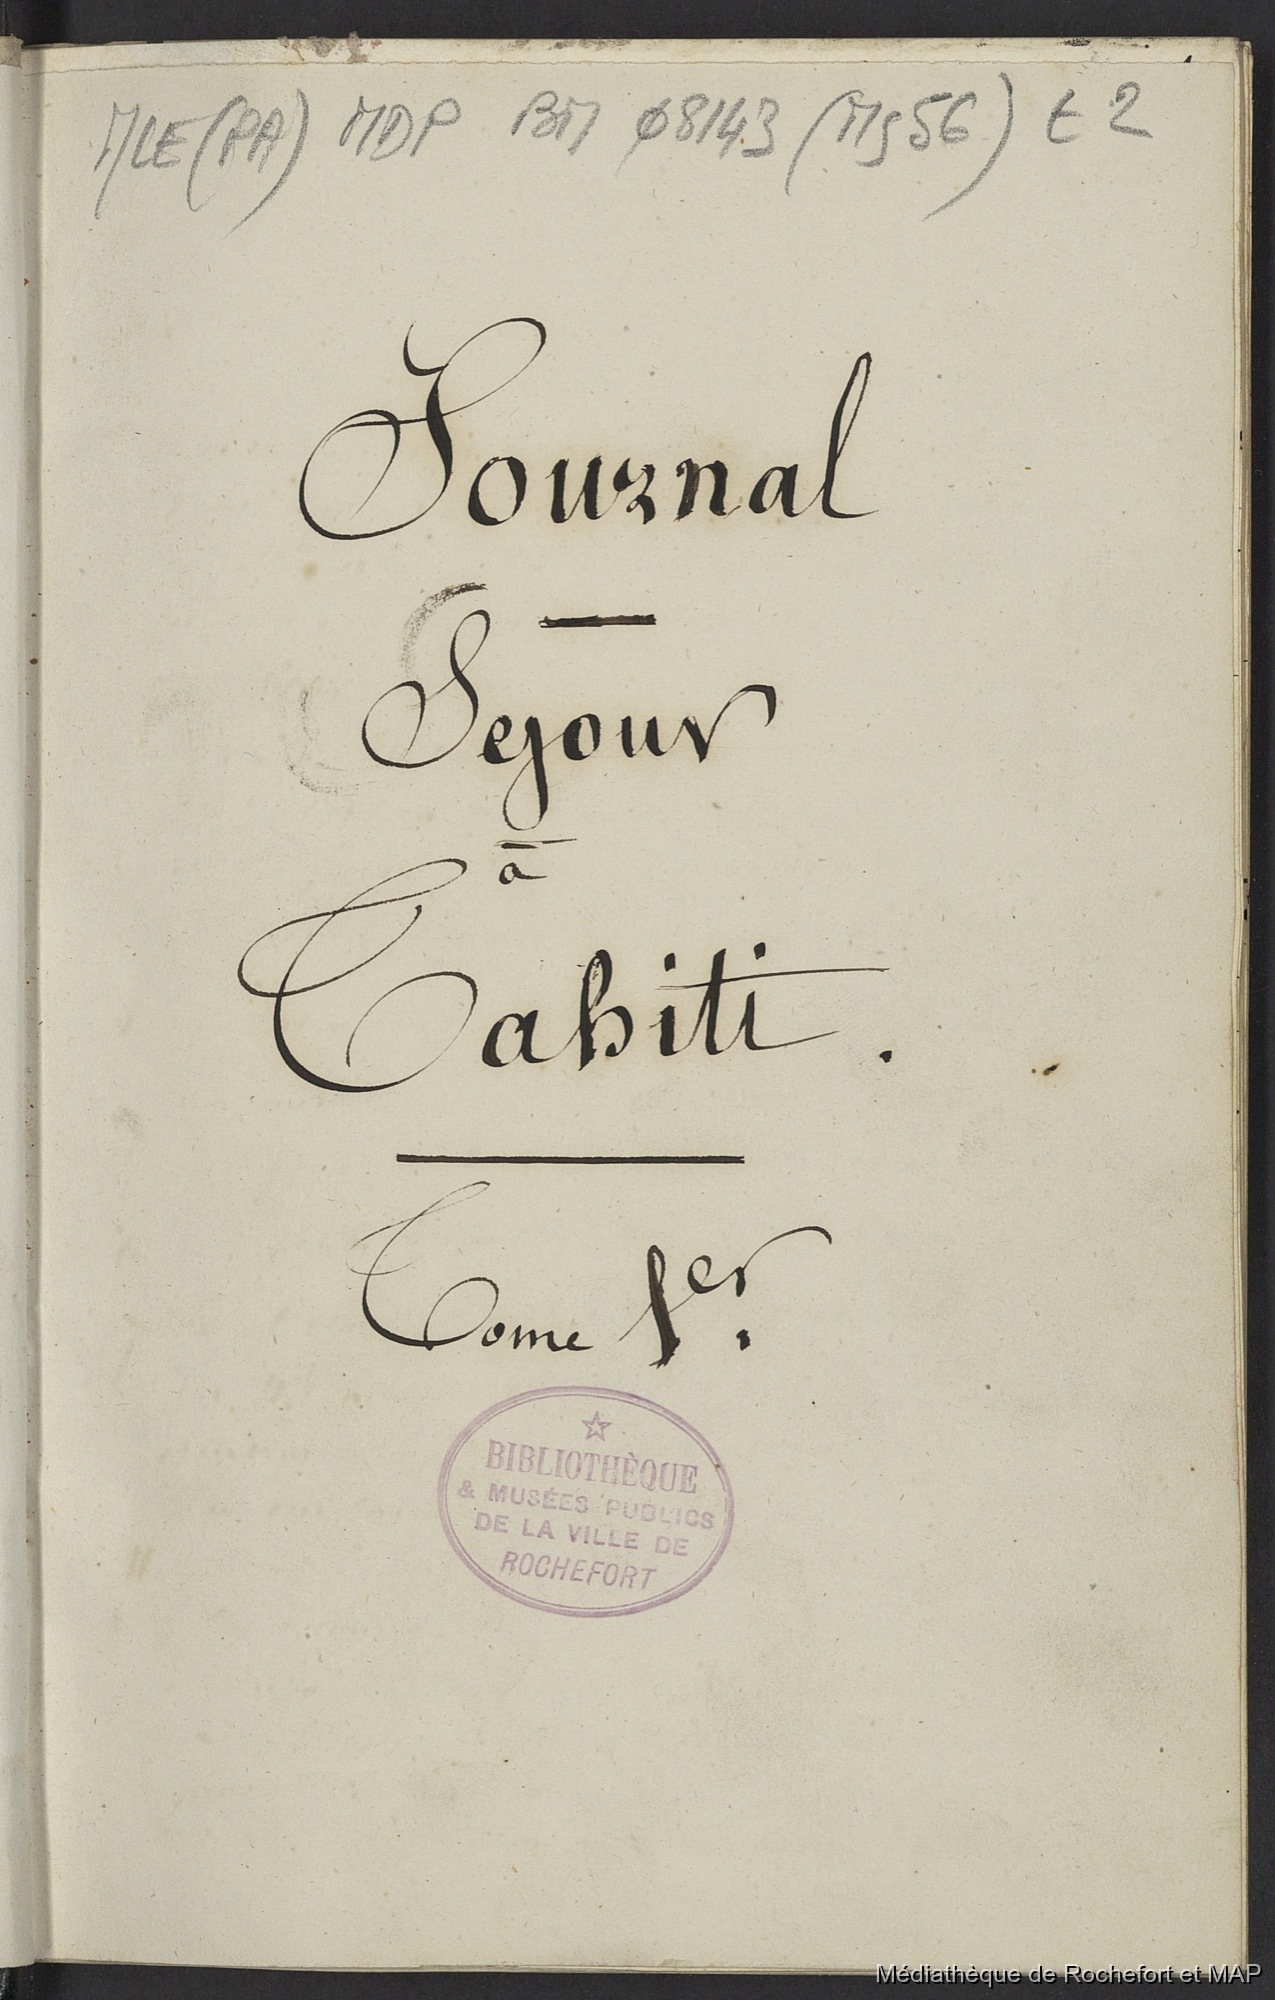 MLE(PA) MDP BM 08143 (Ms56) t 2
Journal
Sejour
à
Tahiti.
Tome 1er.
BIBLIOTHÈQUE
& MUSÉES PUBLICS
DE LA VILLE DE
ROCHEFORT
Médiathèque de Rochefort et MAP